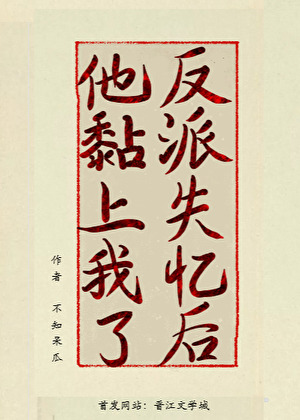 反派失忆后
他黏上我了
作者 不知呆瓜
首发网站：晋江文学城